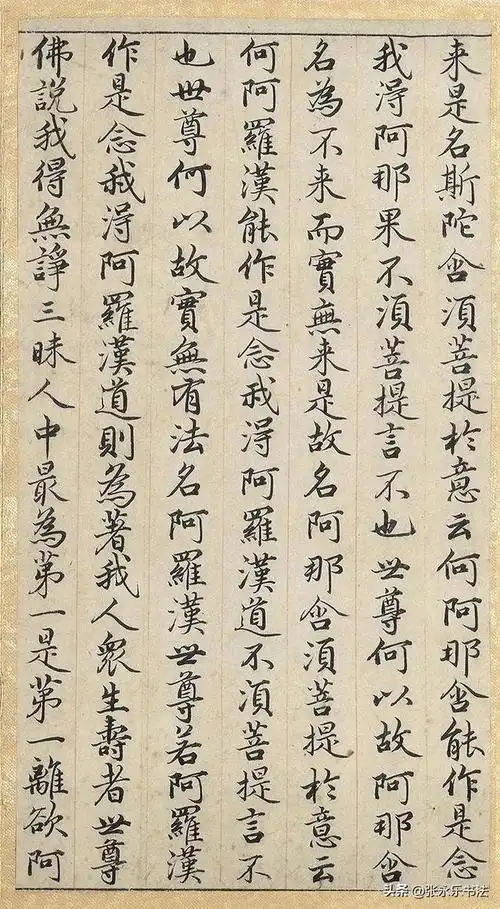 来是名斯陀含須菩提於意云何阿那含能作是念
我得阿那果不須菩提言不也世尊何以故阿那含
名為不来而實無来是故名阿那含須菩提於意云
何阿羅漢能作是念我得阿羅漢道不須菩提言不
也世尊何以故實無有法名阿羅漢世尊若阿羅漢
作是念我得阿羅漢道則為著我人眾生壽者世尊
佛說我得無諍三昧人中最為第一是第一離欲阿
头条 @张永乐书法